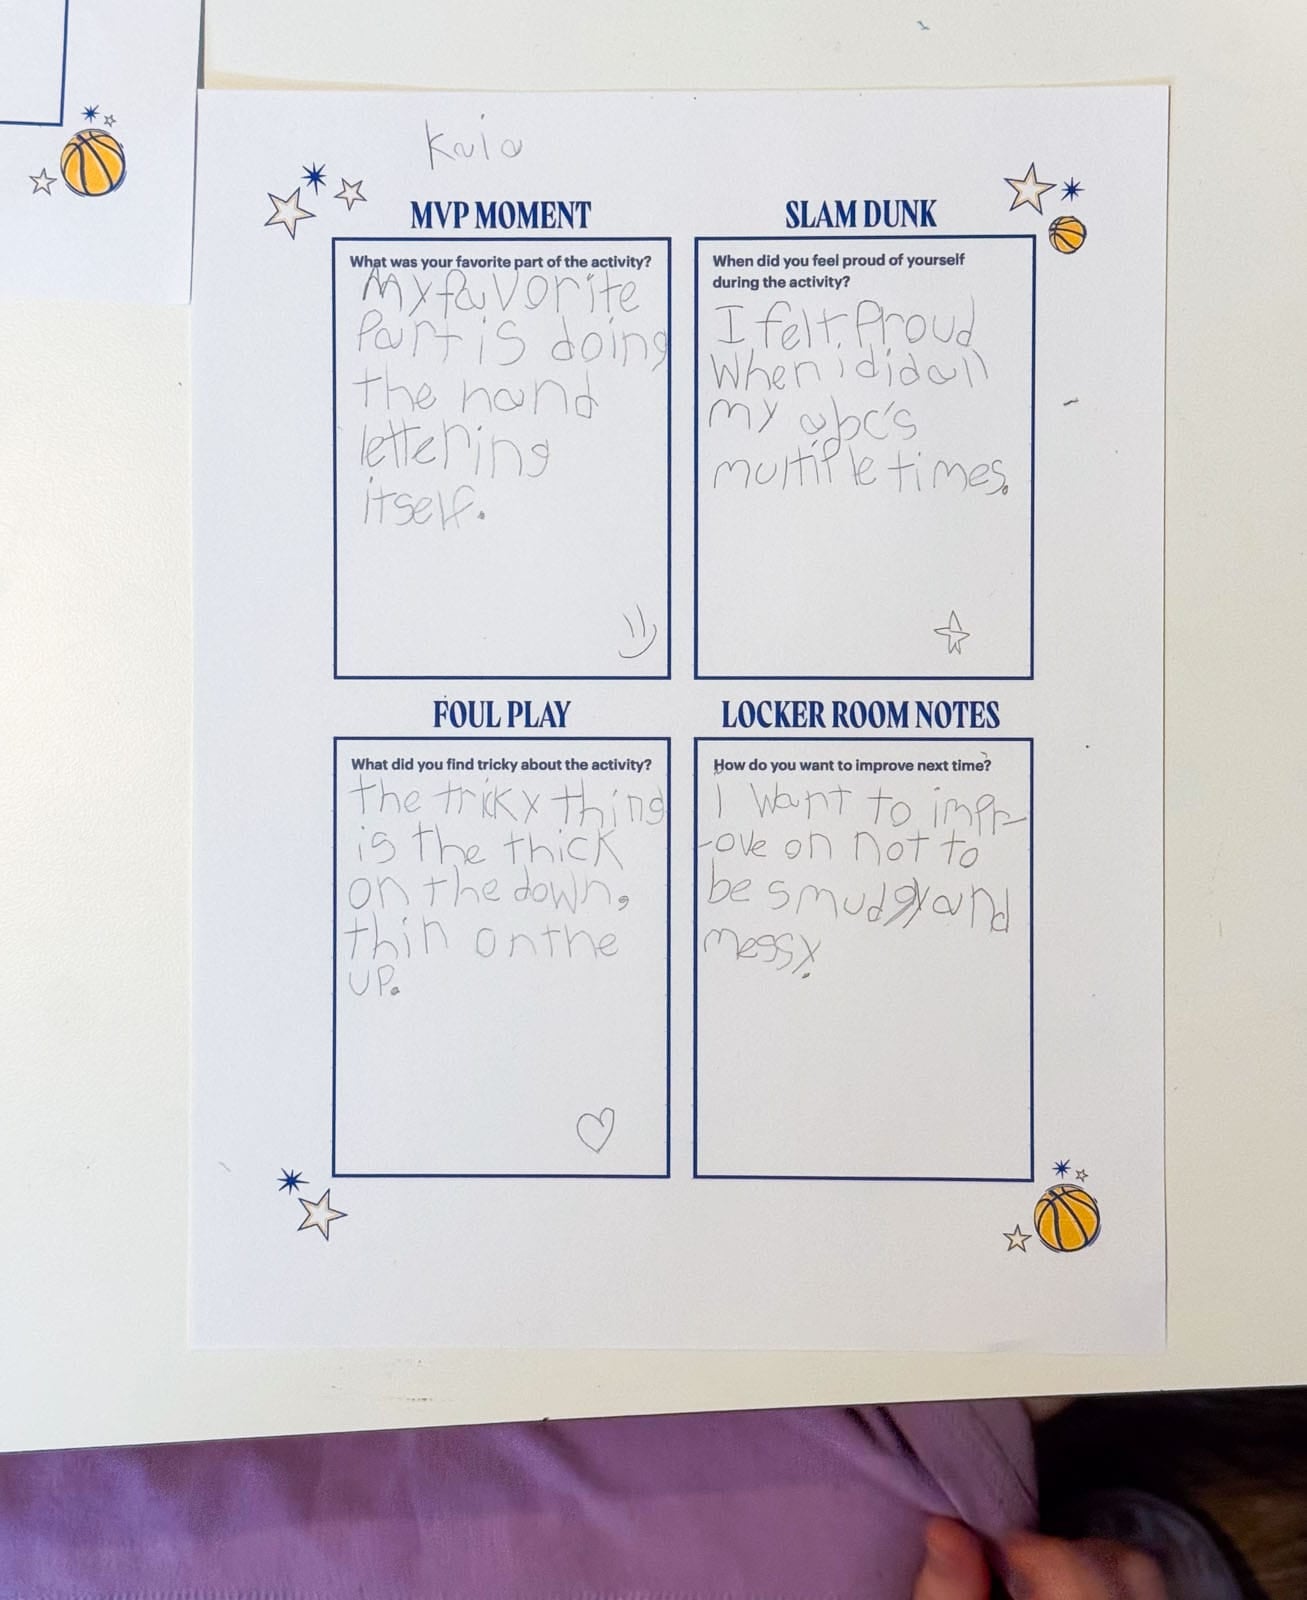 Kaia
MVP MOMENT
What was your favorite part of the activity?
My favorite
Part is doing
the hand
lettering
itself.
SLAM DUNK
When did you feel proud of yourself
during the activity?
I felt Proud
when i did all
my abc's
multiple times.
FOUL PLAY
What did you find tricky about the activity?
the tricky thing
is the thick
on the down,
thin on the
up.
LOCKER ROOM NOTES
How do you want to improve next time?
I want to impr-
-ove on not to
be smudgy and
messy.